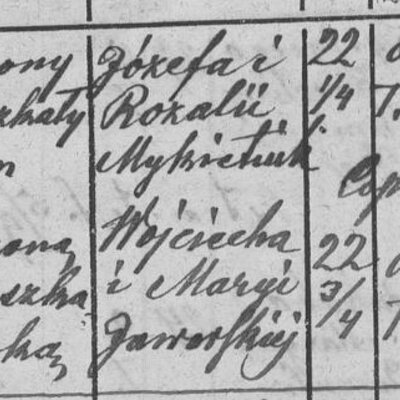 ony Józefa i 22
szkały Rozalii 1/4 T.
n Mykietiuk
Wojciecha
oną 22
szka i Maryi 3/4
ką Jaworskiej T